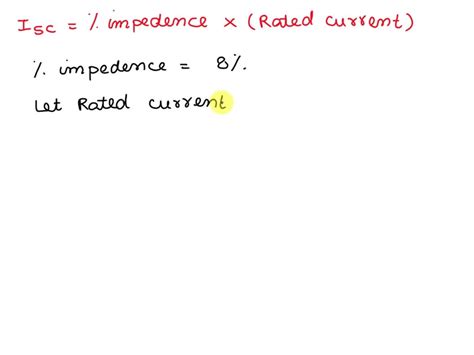 Isc = % impedence × (Rated current)
% impedence = 8%.
Let Rated current